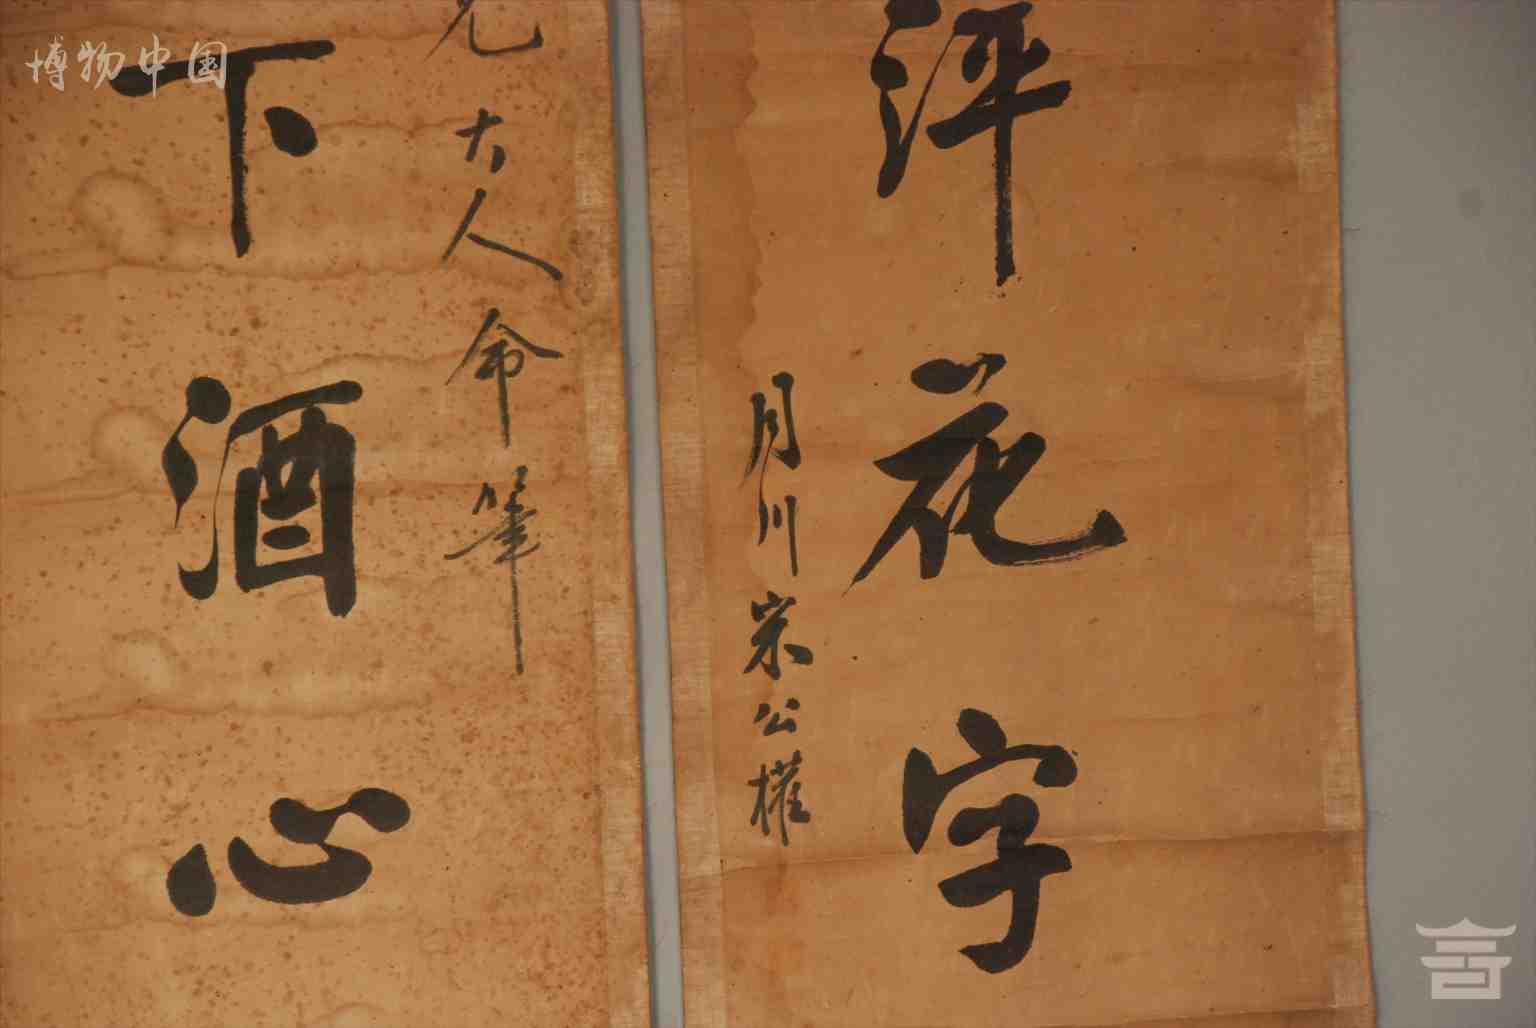 博物中国
评花字
月川宗公權
兄大人命筆
下酒心